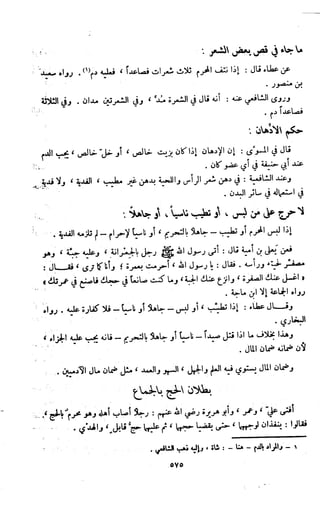 ما جاء في قص بعض الشعر :
عن عطاء قال : إذا نتف المحرم ثلاث شعرات فصاعداً ، فعليه دم(١) . رواه سعيد
بن منصور .
وروى الشافعي عنه : أنه قال في الشعرة مدٌّ ، وفي الشعرتين مدان . وفي الثلاثة
فصاعداً دم .
حكم الادهان :
قال في المسوى : إن الإدهان إذا كان بزيت خالص ، أو خلّ خالص ، يجب الدم
عند أبي حنيفة في أي عضو كان .
وعند الشافعية : في دهن شعر الرأس واللحية بدهن غير مطيب ، الفدية ، ولا فدية
في استعماله في سائر البدن .
لا حرج على من لبس ، أو تطيب ناسياً ، أو جاهلاً :
إذا لبس المحرم أو تطيب - جاهلاً بالتحريم ، أو ناسياً لإحرام - لم تلزمه الفدية .
فعن يعلى بن أمية قال : أتى رسول الله ﷺ رجل بالجعرانة ، وعليه جبّة ، وهو
مصفّر لحيته ورأسه . فقال : يا رسول الله ، أحرمت بعمرة ؛ وأنا كما ترى ، فقـال :
« اغسل عنك الصفرة ، وانزع عنك الجبة ، وما كنت صانعاً في حجك فاصنع في عمرتك »
رواه الجماعة إلا ابن ماجة .
وقـال عطاء : إذا تطيّب ، أو لبس - جاهلاً أو ناسياً - فلا كفارة عليه . رواه
البخاري .
وهذا بخلاف ما اذا قتل صيداً - ناسياً أو جاهلاً بالتحريم - فانه يجب عليه الجزاء ،
لأن ضمانه ضمان المال .
وضمان المال يستوي فيه العلم والجهل ، السهو والعمد ، مثل ضمان مال الآدميين .
بطلان الحج بالجماع
أفتى علي ، وعمر ، وأبو هريرة رضي الله عنهم : رجلاً أصاب أهله وهو محرم بالحج ،
فقالوا : ينفذان لوجهها ، حتى يقضيا حجهما ، ثم عليها حج قابل ، والهدي .
١ - والمراد بالدم - هنا - : شاة ، وإليه ذهب الشافعي .
٥٧٥